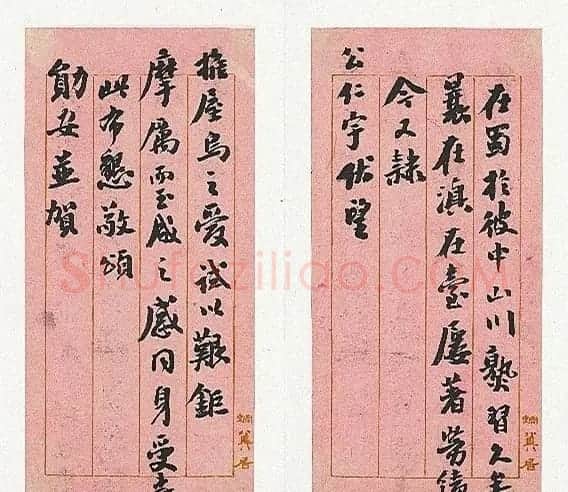 在蜀於彼中山川熟習久
曩在滇在臺屢著勞績
今又隸
公仁宇伏望
推屋烏之愛試以艱鉅
摩厲而玉成之感同身受
此布懇敬頌
勛安並賀
Shufaziliao.COM